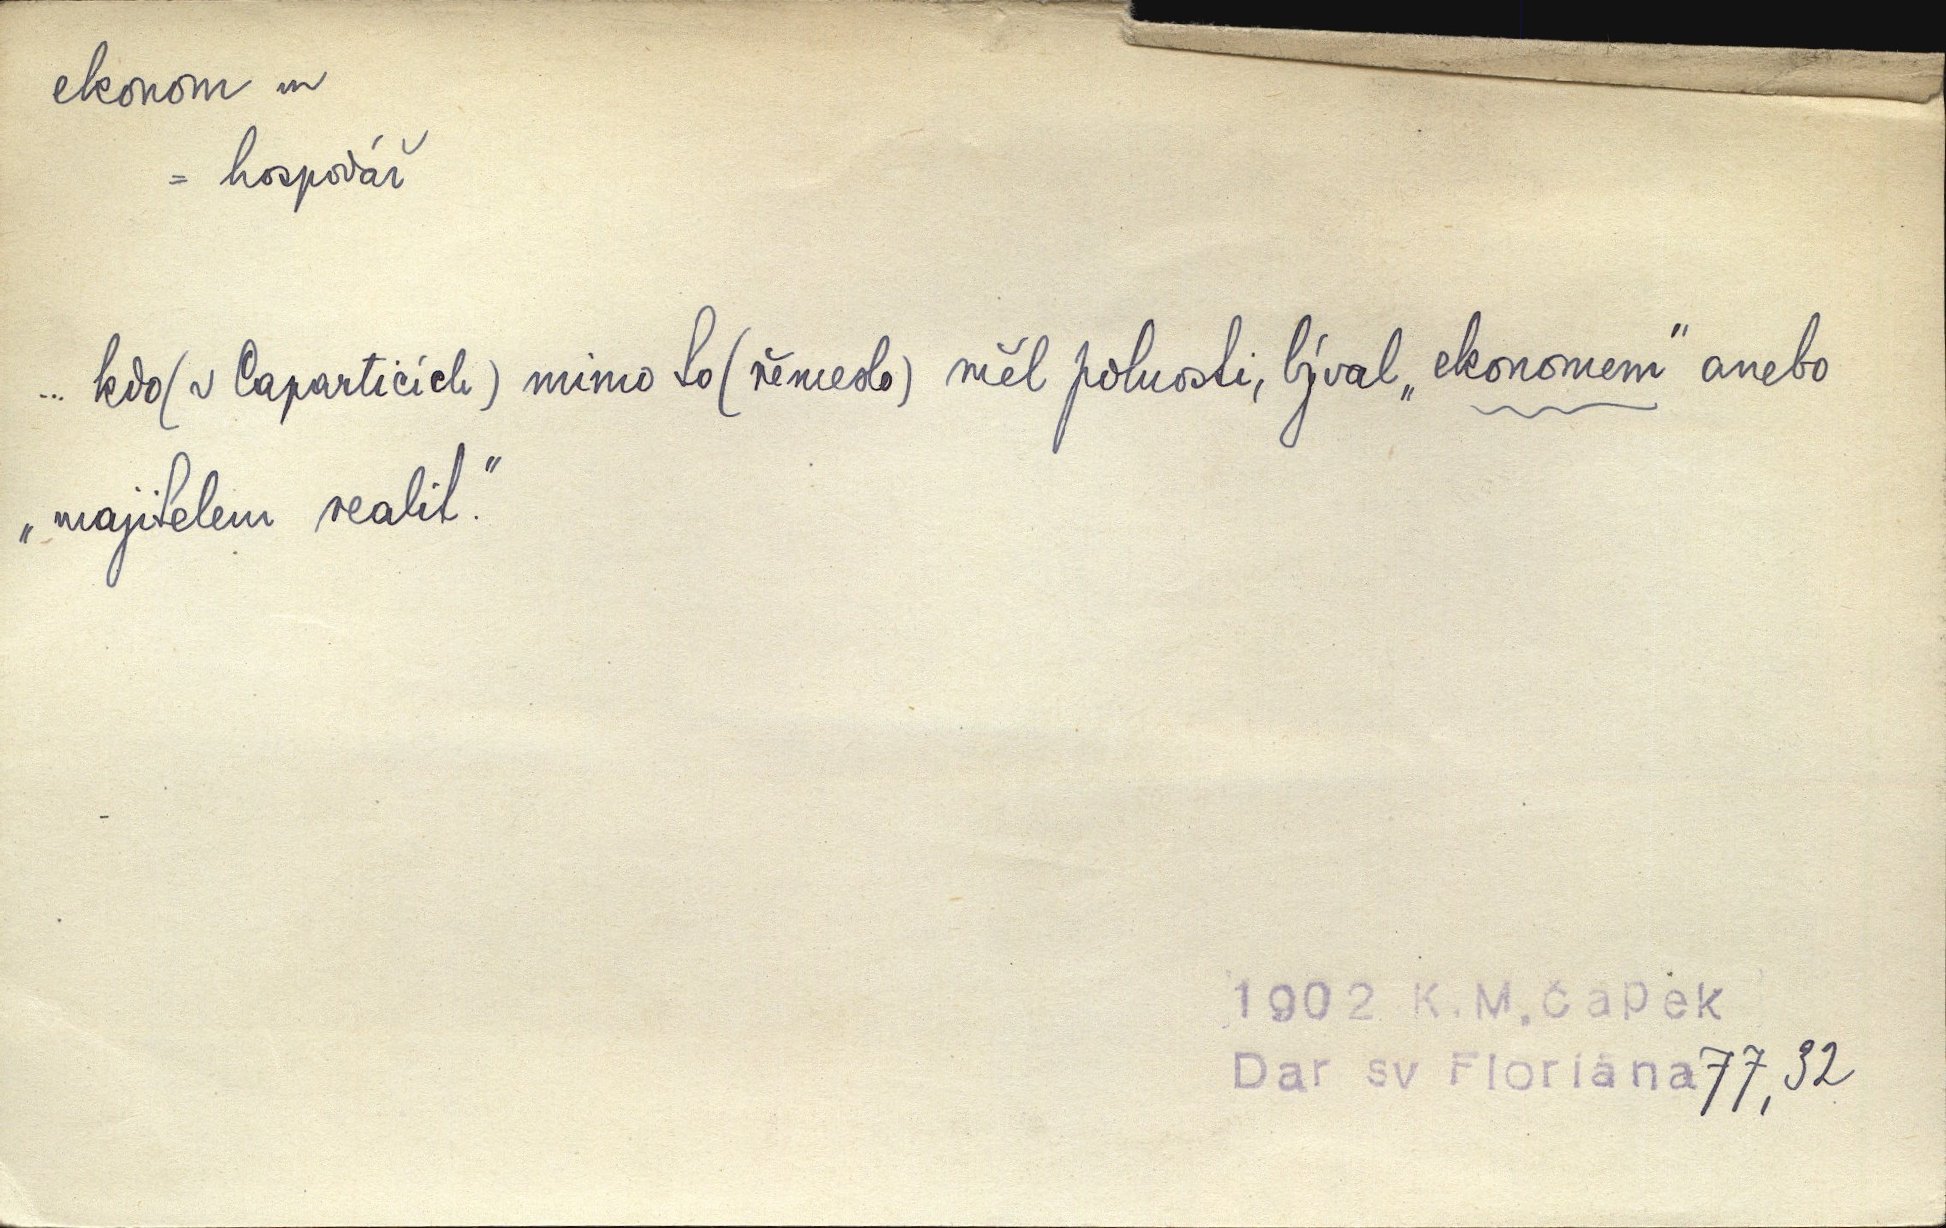 ekonom m
= hospodář
... kdo (v Caparticích) mimo to (řemeslo) měl polnosti, býval „ekonomem" anebo
„majitelem realit."
1902 K.M.Čapek
Dar sv Floriána 77,32